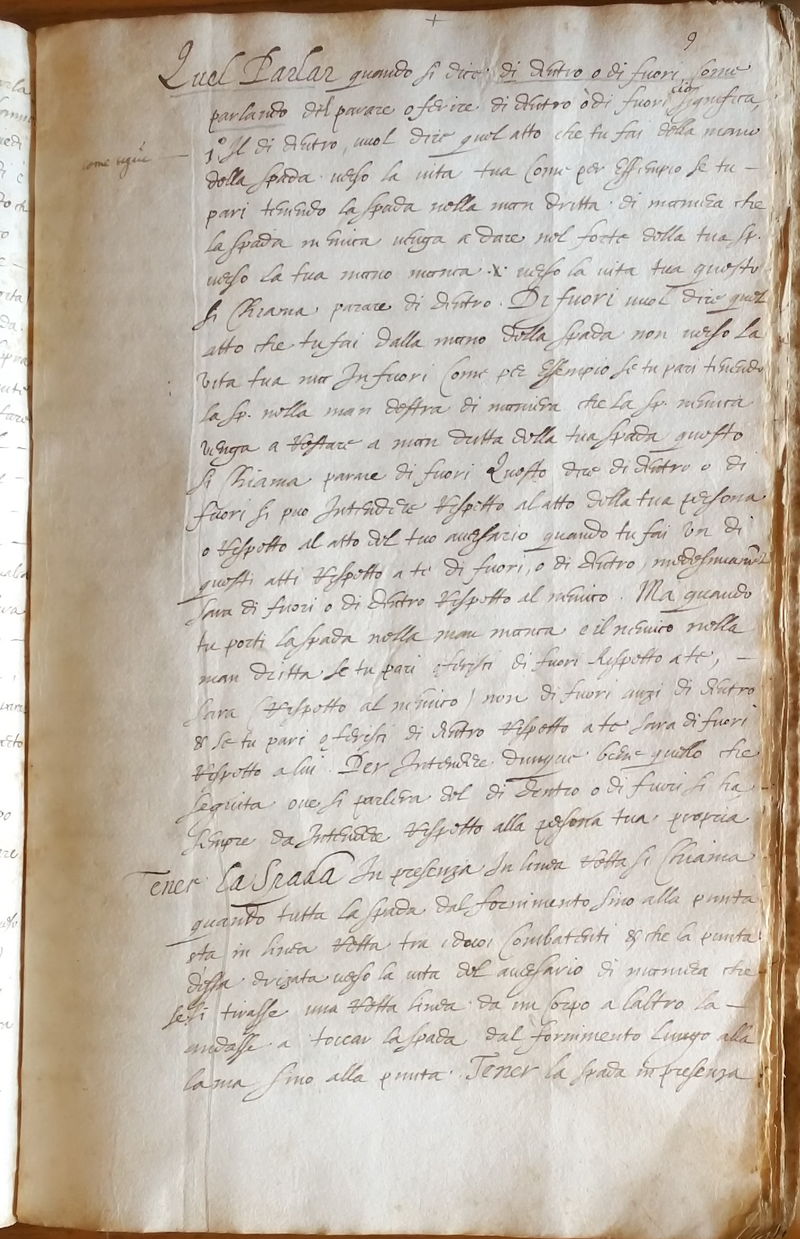 +
9
Quel Parlar quando si dice di dentro o di fuori, come
parlando del parare o ferire di dentro ò di fuori ciò significa,
come segue
1º Il di dentro, vuol dire quel atto che tu fai della mano
della spada verso la vita tua come per essempio se tu –
pari tenendo la spada nella man dritta di maniera che
la spada nemica venga a dare nel forte della tua sp.
verso la tua mano manca .x. verso la vita tua questo
si Chiama parare di dentro. Di fuori vuol dire quel
atto che tu fai dalla mano della spada non verso la
vita tua ma Infuori Come per essempio se tu pari tenendo
la sp. nella man destra di maniera che la sp. nemica
venga a restare a man dritta della tua spada questo
si Chiama parare di fuori Questo dire di dentro o di
fuori si puo Intendere rispetto al atto della tua persona
o rispetto al atto del tuo aversario quando tu fai un di
questi atti rispetto a te di fuori, o di dentro, medesimamte
sara di fuori o di dentro rispetto al nemico. Ma quando
tu porti la spada nella man manca e il nemico nella
man dritta se tu pari o ferisci di fuori Rispetto a te, –
sara (rispetto al nemico) non di fuori anzi di dentro
& se tu pari o ferisci di dentro rispetto a te sara di fuori
rispetto a lui. Per Intendere dunque bene quello che
seguita ove si parlera del di dentro o di fuori si ha
sempre da Intendere rispetto alla persona tua propria
Tener la Spada In presenza In linea retta si Chiama
quando tutta la spada dal fornimento sino alla punta
sta in linea retta tra i doi Combatenti & che la punta
d'essa drizata verso la vita del aversario di maniera che
se si tirasse una retta linea da un corpo a l'altro la –
andasse a toccar la spada dal fornimento lungo alla
lama sino alla punta. Tener la spada in presenza